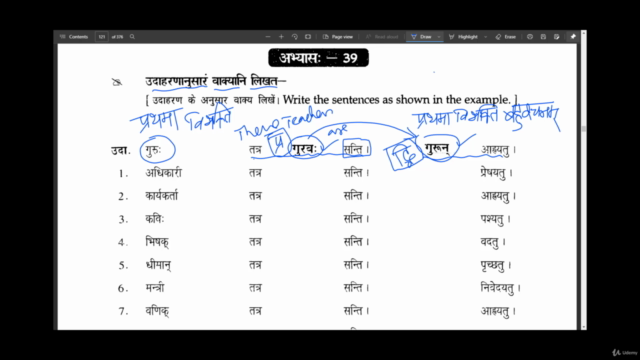 Contents 121 of 576 Page view Read aloud Draw Highlight Erase
अभ्यासः – 39
उदाहरणानुसारं वाक्यानि लिखत–
[ उदाहरण के अनुसार वाक्य लिखें। Write the sentences as shown in the example. ]
प्रथमा विभक्ति There Teachers प्रथमा विभक्ति बहुवचनम्
are
उदा. गुरुः तत्र प्र गुरवः सन्ति। द्वि गुरून् आह्वयतु।
1. अधिकारी तत्र सन्ति। प्रेषयतु।
2. कार्यकर्ता तत्र सन्ति। आह्वयतु।
3. कविः तत्र सन्ति। पश्यतु।
4. भिषक् तत्र सन्ति। वदतु।
5. धीमान् तत्र सन्ति। पृच्छतु।
6. मन्त्री तत्र सन्ति। निवेदयतु।
7. वणिक् तत्र सन्ति। आह्वयतु।
Udemy